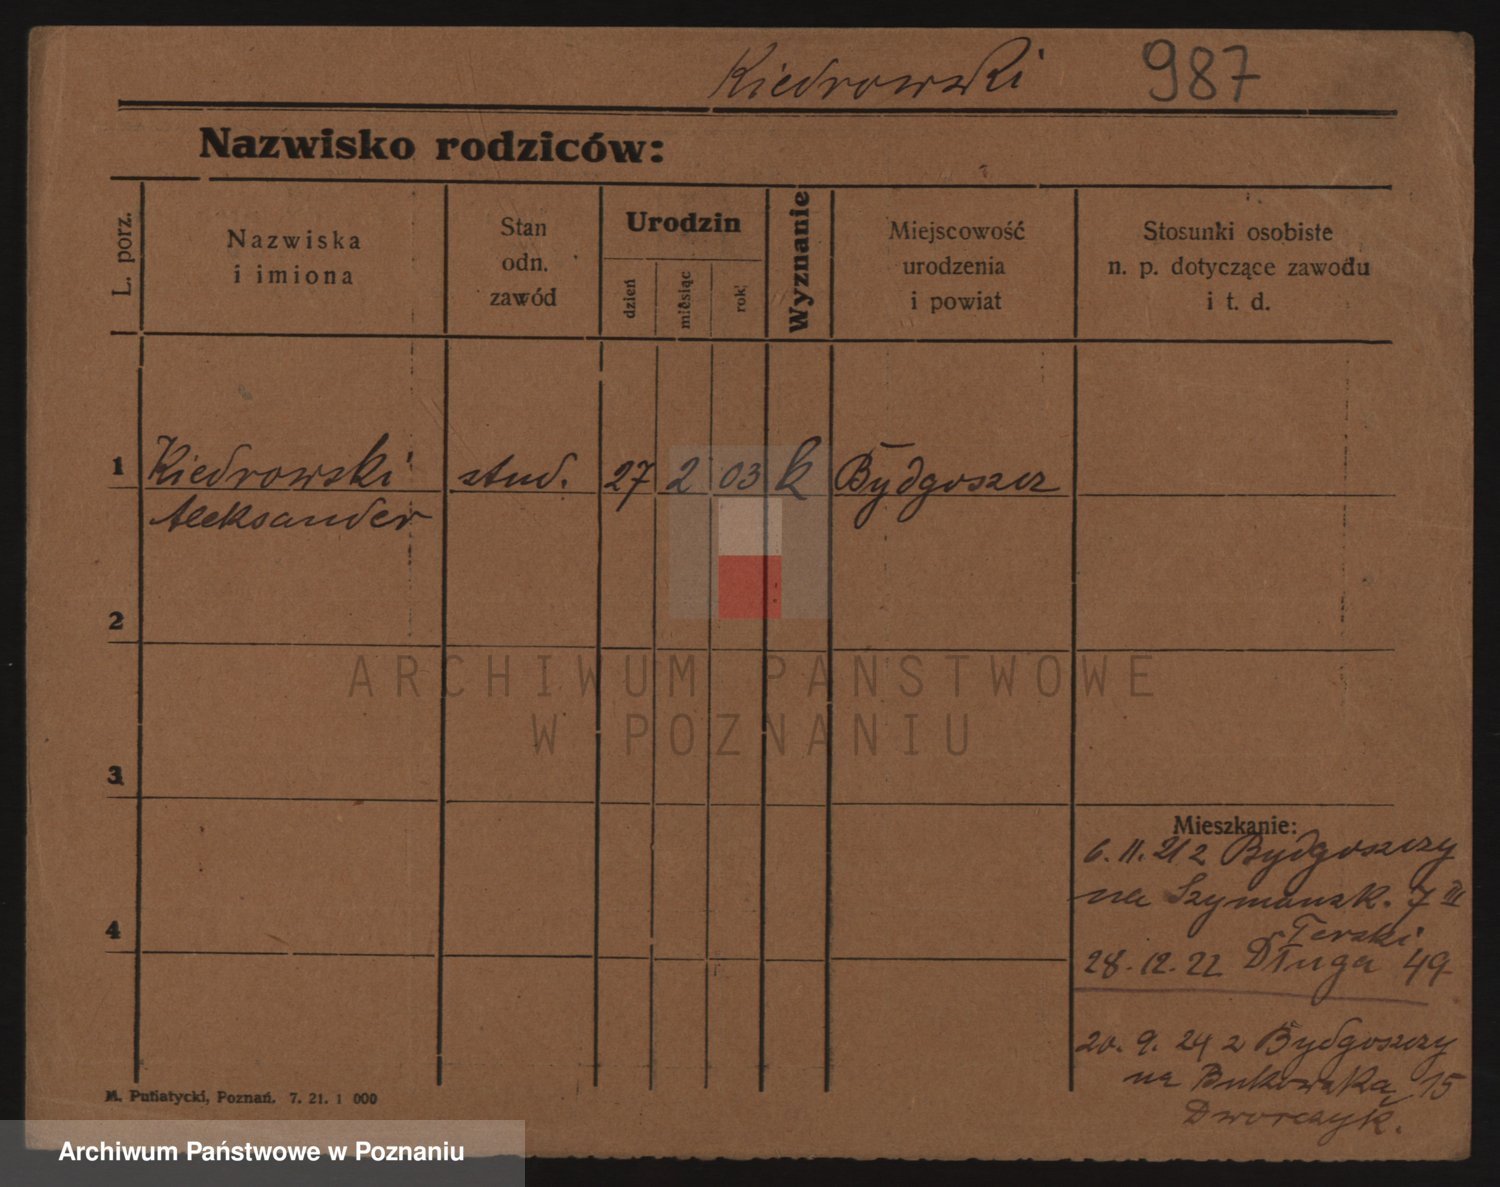 Kiedrowski 987
Nazwisko rodziców:
L. porz.
Nazwiska
i imiona
Stan
odn.
zawód
Urodzin
dzień
miesiąc
rok
Wyznanie
Miejscowość
urodzenia
i powiat
Stosunki osobiste
n. p. dotyczące zawodu
i t. d.
1 Kiedrowski stud. 27 2 03 k Bydgoszcz
Aleksander
2
ARCHIWUM PAŃSTWOWE
W POZNANIU
3
Mieszkanie:
6. 11. 21 z Bydgoszczy
na Szymańsk. 7 III
Terski
4
28. 12. 22 Długa 49
20. 9. 24 z Bydgoszczy
na Bukowską 15
Dworczyk.
M. Putiatycki, Poznań. 7. 21. 1 000
Archiwum Państwowe w Poznaniu